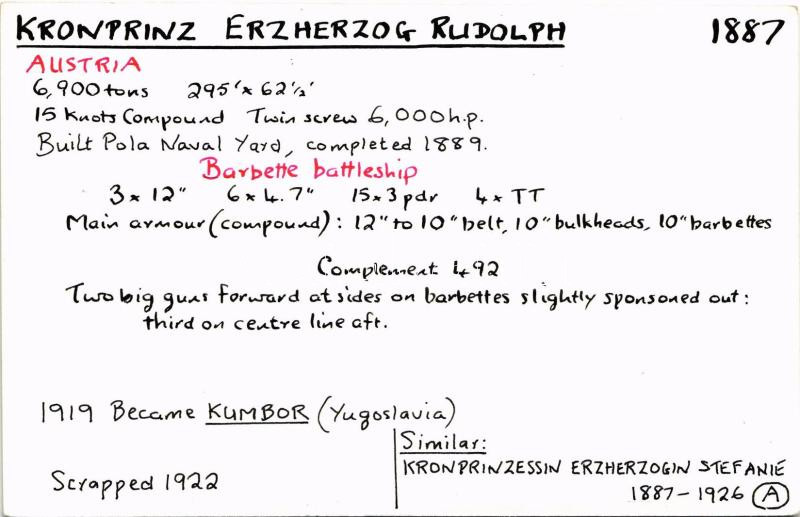 KRONPRINZ ERZHERZOG RUDOLPH 1887
AUSTRIA
6,900 tons 295' x 62½'
15 Knots Compound Twin screw 6,000 h.p.
Built Pola Naval Yard, completed 1889.
Barbette battleship
3 x 12" 6 x 4.7" 15 x 3 pdr 4 x TT
Main armour (compound): 12" to 10" belt, 10" bulkheads, 10" barbettes
Complement 492
Two big guns forward at sides on barbettes slightly sponsoned out:
third on centre line aft.
1919 Became KUMBOR (Yugoslavia)
Scrapped 1922
Similar:
KRONPRINZESSIN ERZHERZOGIN STEFANIE
1887 - 1926 A